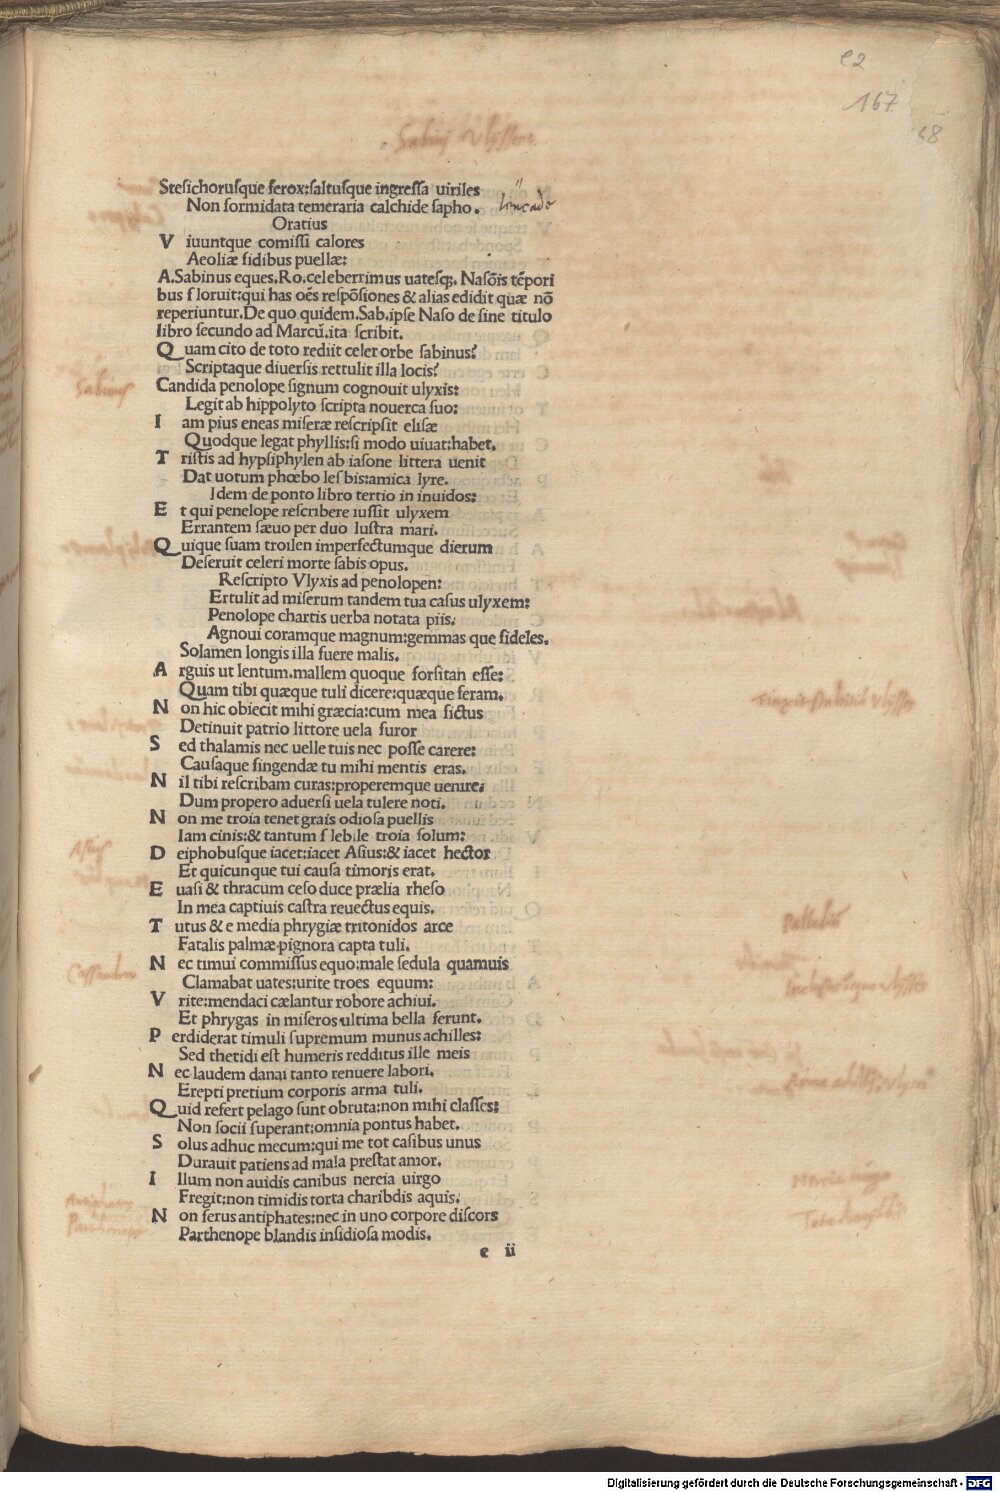 e2
167
48
Sabinj Vlysses
Steſichoruſque ferox:ſaltuſque ingreſſa uiriles
Non formidata temeraria calchide ſapho. leucade
Oratius
V iuuntque comiſſi calores
Aeoliæ fidibus puellæ:
A.Sabinus eques.Ro.celeberrimus uateſqȝ. Naſōis tēpori
bus floruit:qui has oēs reſpōſiones & alias edidit quæ nō
reperiuntur.De quo quidem.Sab.ipſe Naſo de ſine titulo
libro ſecundo ad Marcū.ita ſcribit.
Q uam cito de toto rediit celer orbe ſabinus?
Scriptaque diuerſis rettulit illa locis?
Candida penolope ſignum cognouit ulyxis:
Sabinus
Legit ab hippolyto ſcripta nouerca ſuo:
I am pius eneas miſeræ reſcripſit eliſæ
Quodque legat phyllis:ſi modo uiuat:habet.
T riſtis ad hypſiphylen ab iaſone littera uenit
Dat uotum phœbo leſbis:amica lyre.
Idem de ponto libro tertio in inuidos:
E t qui penelope reſcribere iuſſit ulyxem
Errantem ſæuo per duo luſtra mari.
Q uique ſuam troilen imperfectumque dierum
Deſeruit celeri morte ſabis opus.
Reſcripto Vlyxis ad penolopen:
Ertulit ad miſerum tandem tua caſus ulyxem:
Penolope chartis uerba notata piis.
Agnoui coramque magnum:gemmas que fideles.
Solamen longis illa fuere malis.
A rguis ut lentum.mallem quoque forſitan eſſe:
Quam tibi quæque tuli dicere:quæque feram.
N on hic obiecit mihi græcia:cum mea fictus
Detinuit patrio littore uela furor
S ed thalamis nec uelle tuis nec poſſe carere:
Cauſaque fingendæ tu mihi mentis eras.
N il tibi reſcribam curas:properemque uenire;
Dum propero aduerſi uela tulere noti.
N on me troia tenet grais odioſa puellis
Iam cinis:& tantum flebile troia ſolum:
D eiphobuſque iacet:iacet Aſius:& iacet hector
Aſius
Et quicunque tui cauſa timoris erat.
E uaſi & thracum ceſo duce prælia rheſo
In mea captiuis caſtra reuectus equis.
T utus & e media phrygiæ tritonidos arce
Palladis
Fatalis palmæ pignora capta tuli.
N ec timui commiſſus equo:male ſedula quamuis
Caſſandra
Clamabat uates:urite troes equum:
V rite:mendaci cælantur robore achiui.
Et phrygas in miſeros ultima bella ferunt.
P erdiderat timuli ſupremum munus achilles:
Sed thetidi eſt humeris redditus ille meis
N ec laudem danai tanto renuere labori.
Erepti pretium corporis arma tuli.
Q uid refert pelago ſunt obruta:non mihi claſſes:
Non ſocii ſuperant:omnia pontus habet.
S olus adhuc mecum:qui me tot caſibus unus
Durauit patiens ad mala preſtat amor.
I llum non auidis canibus nereia uirgo
Nereia uirgo
Fregit:non timidis torta charibdis aquis.
Antiphates
N on ferus antiphates:nec in uno corpore diſcors
Parthenope blandis inſidioſa modis.
e ii
Digitalisierung gefördert durch die Deutsche Forschungsgemeinschaft - DFG